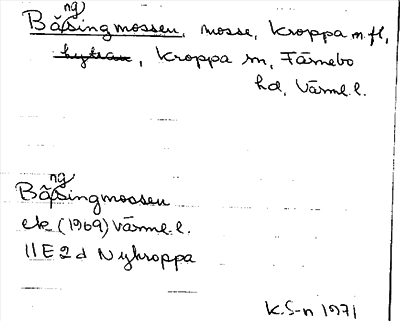 Bångsingmossen, mosse, Kroppa m.fl.,
hyttan, Kroppa sn, Färnebo
hd, Värml. l.
Bångsingmossen
ek (1969) Värml. l.
11E2d Nykroppa
K.S-n 1971